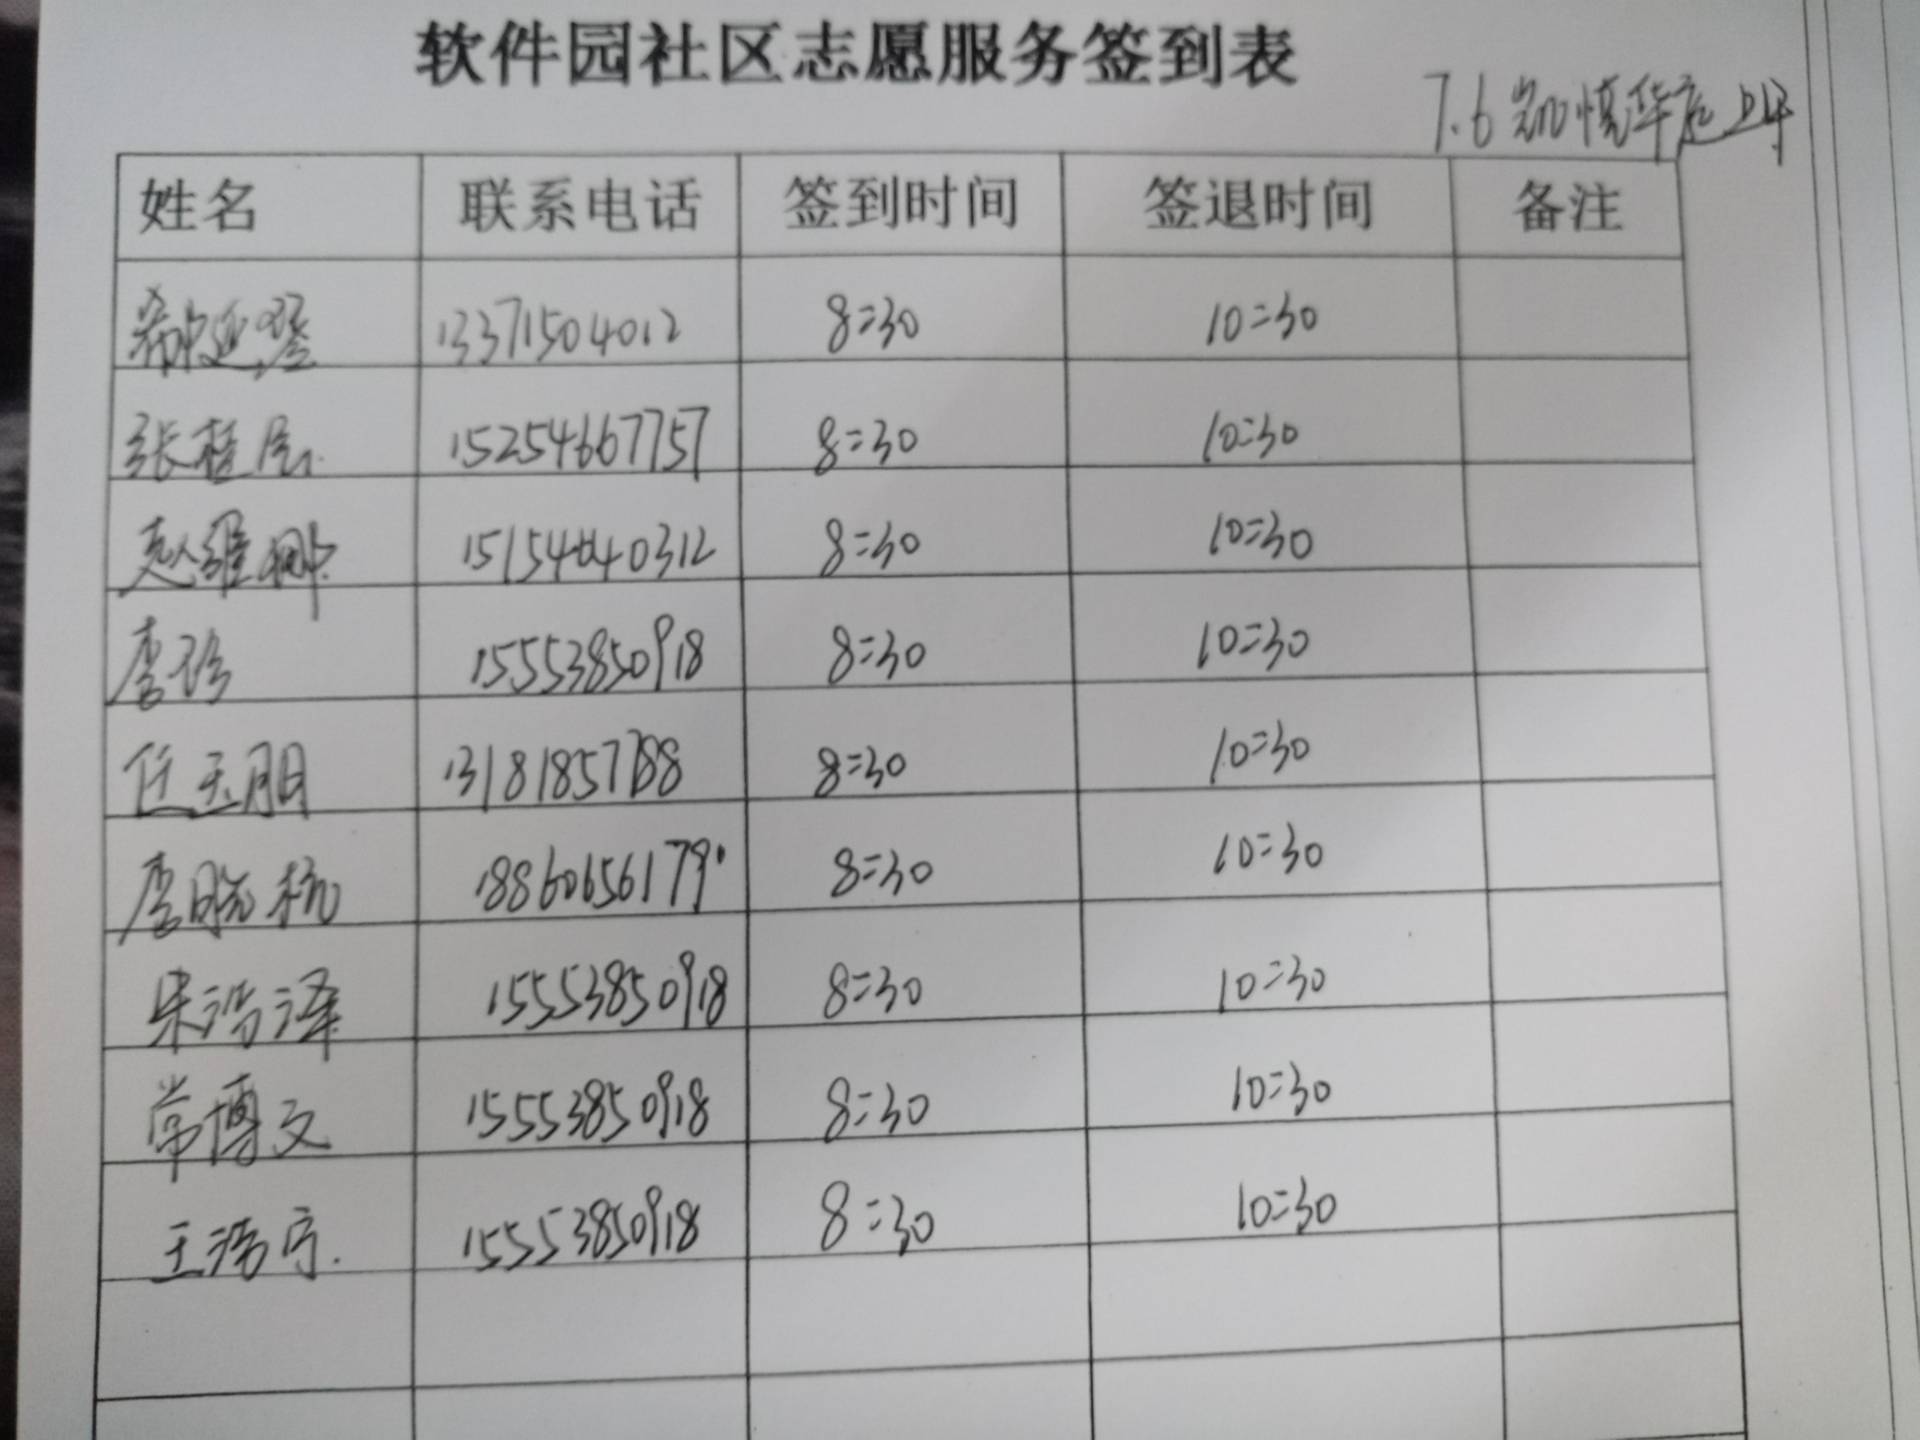 软件园社区志愿服务签到表
7.6 凯悦华庭上午
姓名 联系电话 签到时间 签退时间 备注
13371504012 8:30 10:30
张桂 15254667757 8:30 10:30
赵维娜 15154040312 8:30 10:30
李珍 15553850918 8:30 10:30
任玉朋 13181857788 8:30 10:30
李晓杭 18860656179 8:30 10:30
朱浩泽 15553850918 8:30 10:30
常博文 15553850918 8:30 10:30
王浩宁 15553850918 8:30 10:30